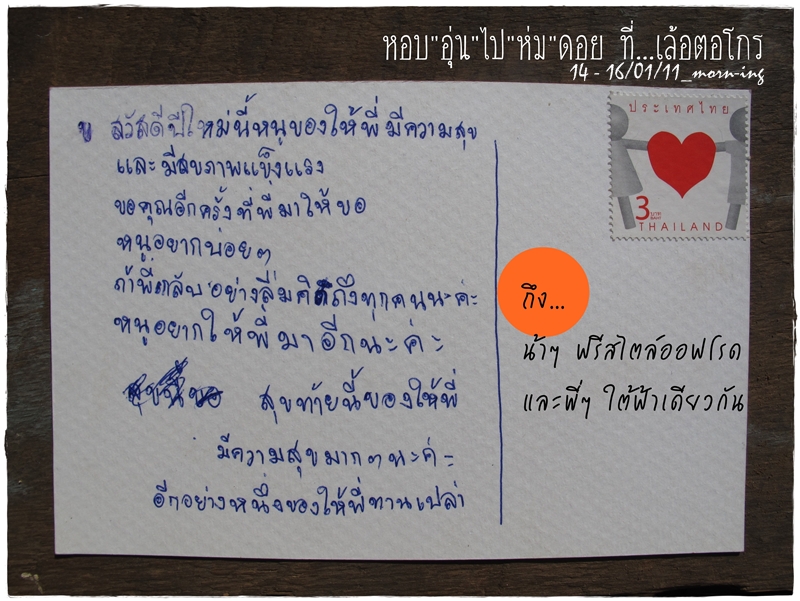 หอบ"อุ่น"ไป"ห่ม"ดอย ที่...เล้อตอโกร
14 - 16/01/11_morn-ing
ประเทศไทย
3 บาท
THAILAND
ข สวัสดีปีใหม่นี้หนูของให้พี่มีความสุข
และมีสุขภาพแข็งแรง
ขอคุณอีกครั้งที่พี่มาให้ขอ
หนูอยากบ่อยๆ
ถ้าพี่กลับอย่างลืมคิดถึงทุกคนนะค่ะ
หนูอยากให้พี่มาอีกนะค่ะ
สุขท้ายนี้ของให้พี่
มีความสุขมากๆนะค่ะ
อีกอย่างหนึ่งของให้พี่ทานเปล่า
ถึง...
น้าๆ ฟรีสไตล์ออฟโรด
และพี่ๆ ใต้ฟ้าเดียวกัน